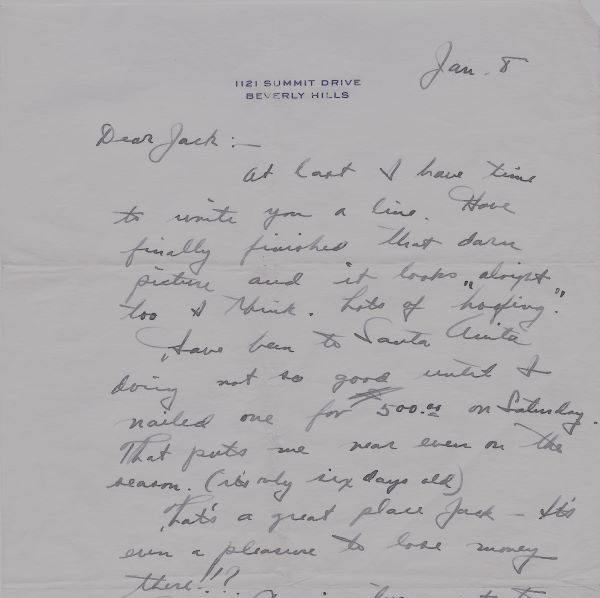 Jan. 8
1121 SUMMIT DRIVE
BEVERLY HILLS
Dear Jack :—
At last I have time
to write you a line. Have
finally finished that darn
picture and it looks alright
too I think. Lots of "hoofing".
Have been to Santa Anita
doing not so good until I
nailed one for 500.00 on Saturday.
That puts me near even on the
season. (its only six days old)
That's a great place Jack — It's
even a pleasure to lose money
there!!?